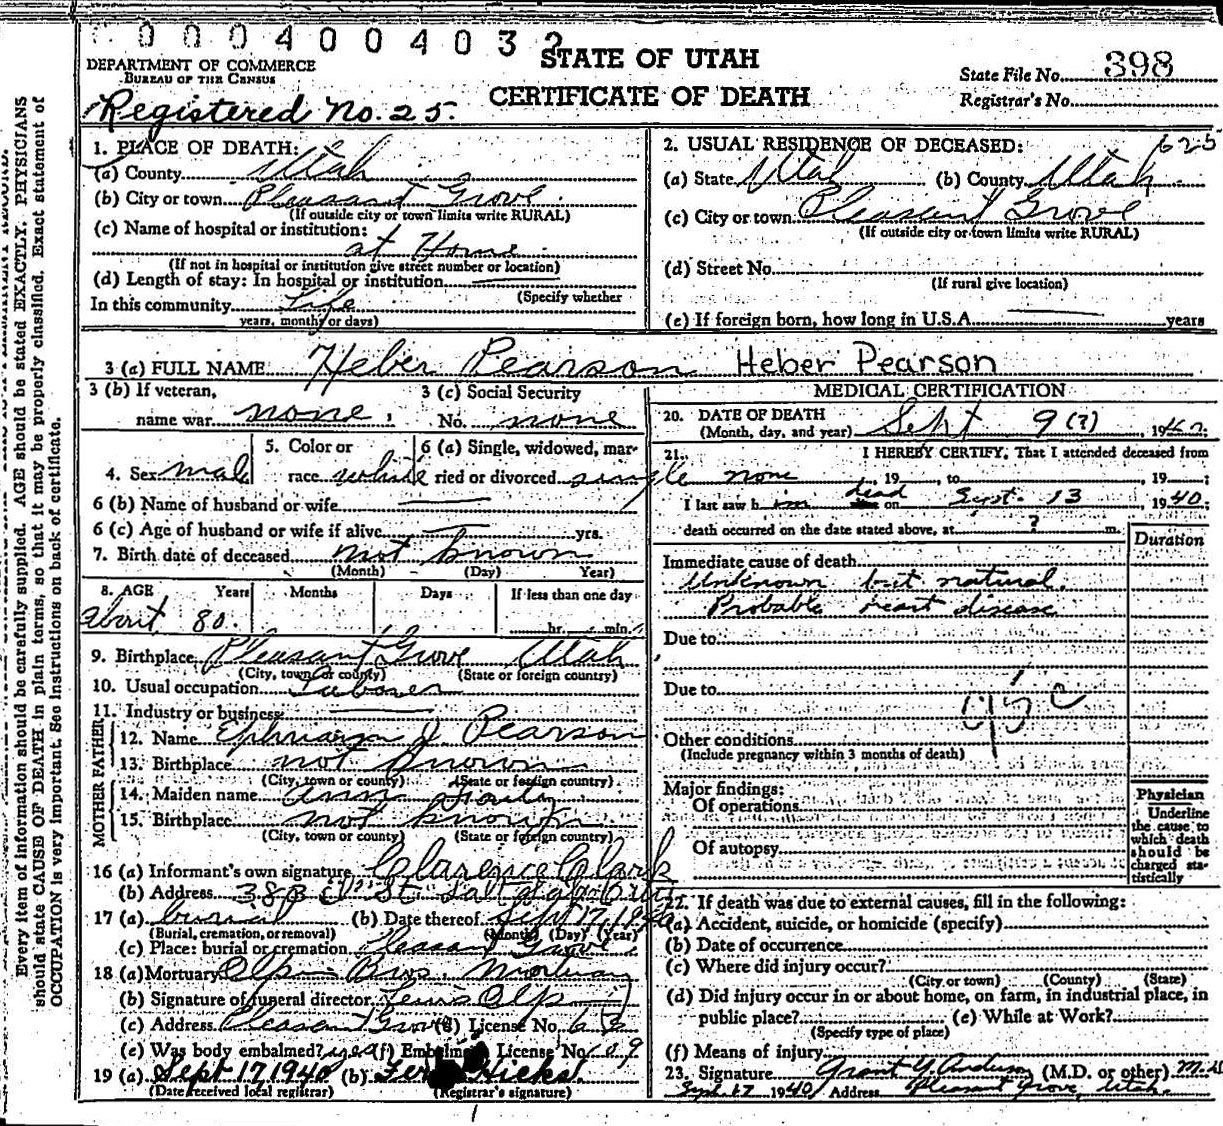 0004004032
STATE OF UTAH
CERTIFICATE OF DEATH
DEPARTMENT OF COMMERCE
BUREAU OF THE CENSUS
State File No. 398
Registrar's No.
Registered No. 25.
Every item of information should be carefully supplied. AGE should be stated EXACTLY. PHYSICIANS
should state CAUSE OF DEATH in plain terms, so that it may be properly classified. Exact statement of
OCCUPATION is very important. See instructions on back of certificate.
1. PLACE OF DEATH:
(a) County Utah
(b) City or town Pleasant Grove
(If outside city or town limits write RURAL)
(c) Name of hospital or institution:
at Home
(If not in hospital or institution give street number or location)
(d) Length of stay: In hospital or institution
(Specify whether
In this community Life
years, months or days)
2. USUAL RESIDENCE OF DECEASED: 625
(a) State Utah (b) County Utah
(c) City or town Pleasant Grove
(If outside city or town limits write RURAL)
(d) Street No.
(If rural give location)
(e) If foreign born, how long in U.S.A. years
3 (a) FULL NAME Heber Pearson Heber Pearson
3 (b) If veteran,
name war none
3 (c) Social Security
No. none
4. Sex male
5. Color or
race white
6 (a) Single, widowed, mar-
ried or divorced single
6 (b) Name of husband or wife
6 (c) Age of husband or wife if alive yrs.
7. Birth date of deceased not known
(Month) (Day) Year)
8. AGE Years Months Days If less than one day
about 80. hr. min.
9. Birthplace Pleasant Grove Utah
(City, town or county) (State or foreign country)
10. Usual occupation Laborer
11. Industry or business
FATHER
12. Name Ephriam J. Pearson
13. Birthplace not known
(City, town or county) (State or foreign country)
MOTHER
14. Maiden name Ann
15. Birthplace not known
(City, town or county) (State or foreign country)
16 (a) Informant's own signature Clarence Clark
(b) Address 383 E St. Salt Lake City
17 (a) burial (b) Date thereof Sept 17, 1940
(Burial, cremation, or removal) (Month) (Day) (Year)
(c) Place: burial or cremation Pleasant Grove
18 (a) Mortuary Olpin Bros. Mortuary
(b) Signature of funeral director Lewis Olpin
(c) Address Pleasant Grove (d) License No.
(e) Was body embalmed? yes (f) Embalmer License No.
19 (a) Sept 17, 1940 (b) Hicks.
(Date received local registrar) (Registrar's signature)
MEDICAL CERTIFICATION
20. DATE OF DEATH
(Month, day, and year) Sept 9 (?), 1940
21. I HEREBY CERTIFY, That I attended deceased from
none, 19 , to , 19 ;
I last saw him dead on Sept. 13 1940;
death occurred on the date stated above, at ? m.
Duration
Immediate cause of death
Unknown but natural.
Probable heart disease
Due to
Due to
Other conditions
(Include pregnancy within 3 months of death)
Major findings:
Of operations
Of autopsy
Physician
Underline
the cause to
which death
should be
charged sta-
tistically
22. If death was due to external causes, fill in the following:
(a) Accident, suicide, or homicide (specify)
(b) Date of occurrence
(c) Where did injury occur?
(City or town) (County) (State)
(d) Did injury occur in or about home, on farm, in industrial place, in
public place? (e) While at Work?
(Specify type of place)
(f) Means of injury
23. Signature Grant Y. Anderson (M.D. or other) M.D.
Sept. 17 1940 Address Pleasant Grove, Utah.